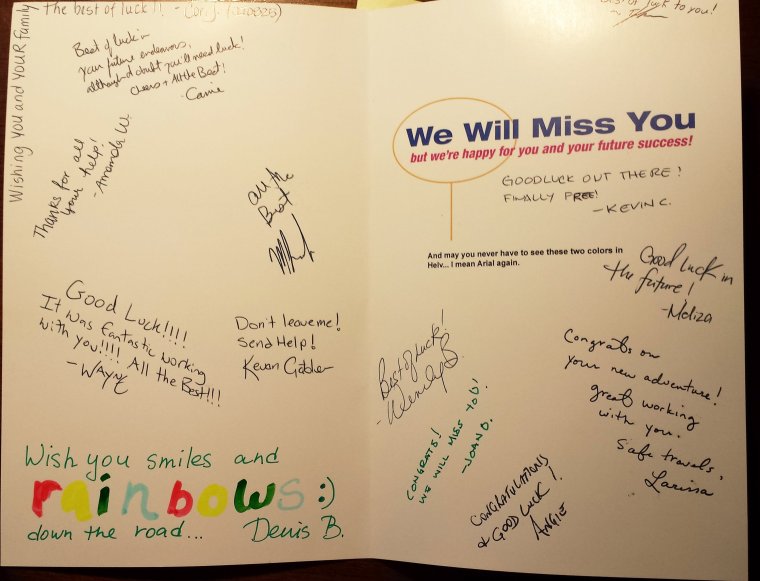 Wishing you and YOUR family
the best of luck!! - Cori J.
Best of luck in
your future endeavors,
although I doubt you'll need luck!
Cheers + All the Best!
-Carrie
Thanks for all
your help!
-Amanda W.
All the
Best
Good Luck!!!!
It was fantastic working
with you!!!! All the Best!!!
-WAYNE
Don't leave me!
Send Help!
Kevan
Wish you smiles and
rainbows :)
down the road... Denis B.
luck to you!
We Will Miss You
but we're happy for you and your future success!
GOODLUCK OUT THERE!
FINALLY FREE!
-KEVIN C.
And may you never have to see these two colors in
Helv... I mean Arial again.
Good Luck in
the future!
-Meliza
Best of Luck!
-Wendy B.
CONGRATS!
WE WILL MISS YOU!
-JOAN D.
Congrats on
your new adventure!
great working
with you.
Safe travels,
Larissa
CONGRATULATIONS
& GOOD LUCK!
ANGIE